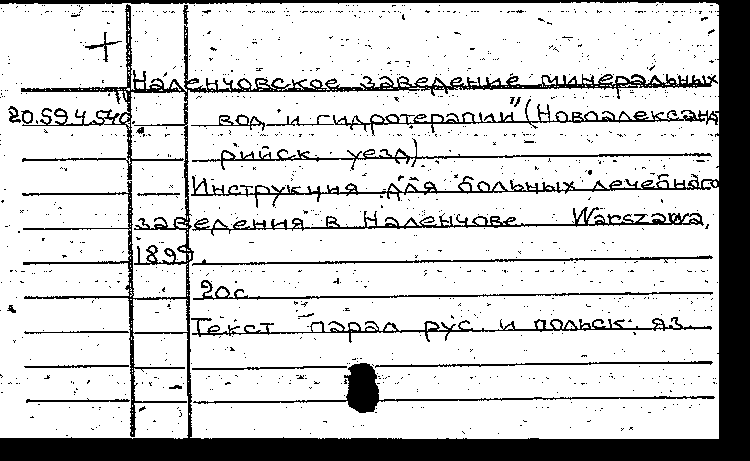 "Наленчовское заведение минеральных
20.59.4.540 вод и гидротерапии" (Новоалександ
рийск. уезд)
Инструкция для больных лечебного
заведения в Наленчове. Warszawa,
1899.
20с.
Текст парал. рус. и польск. яз.